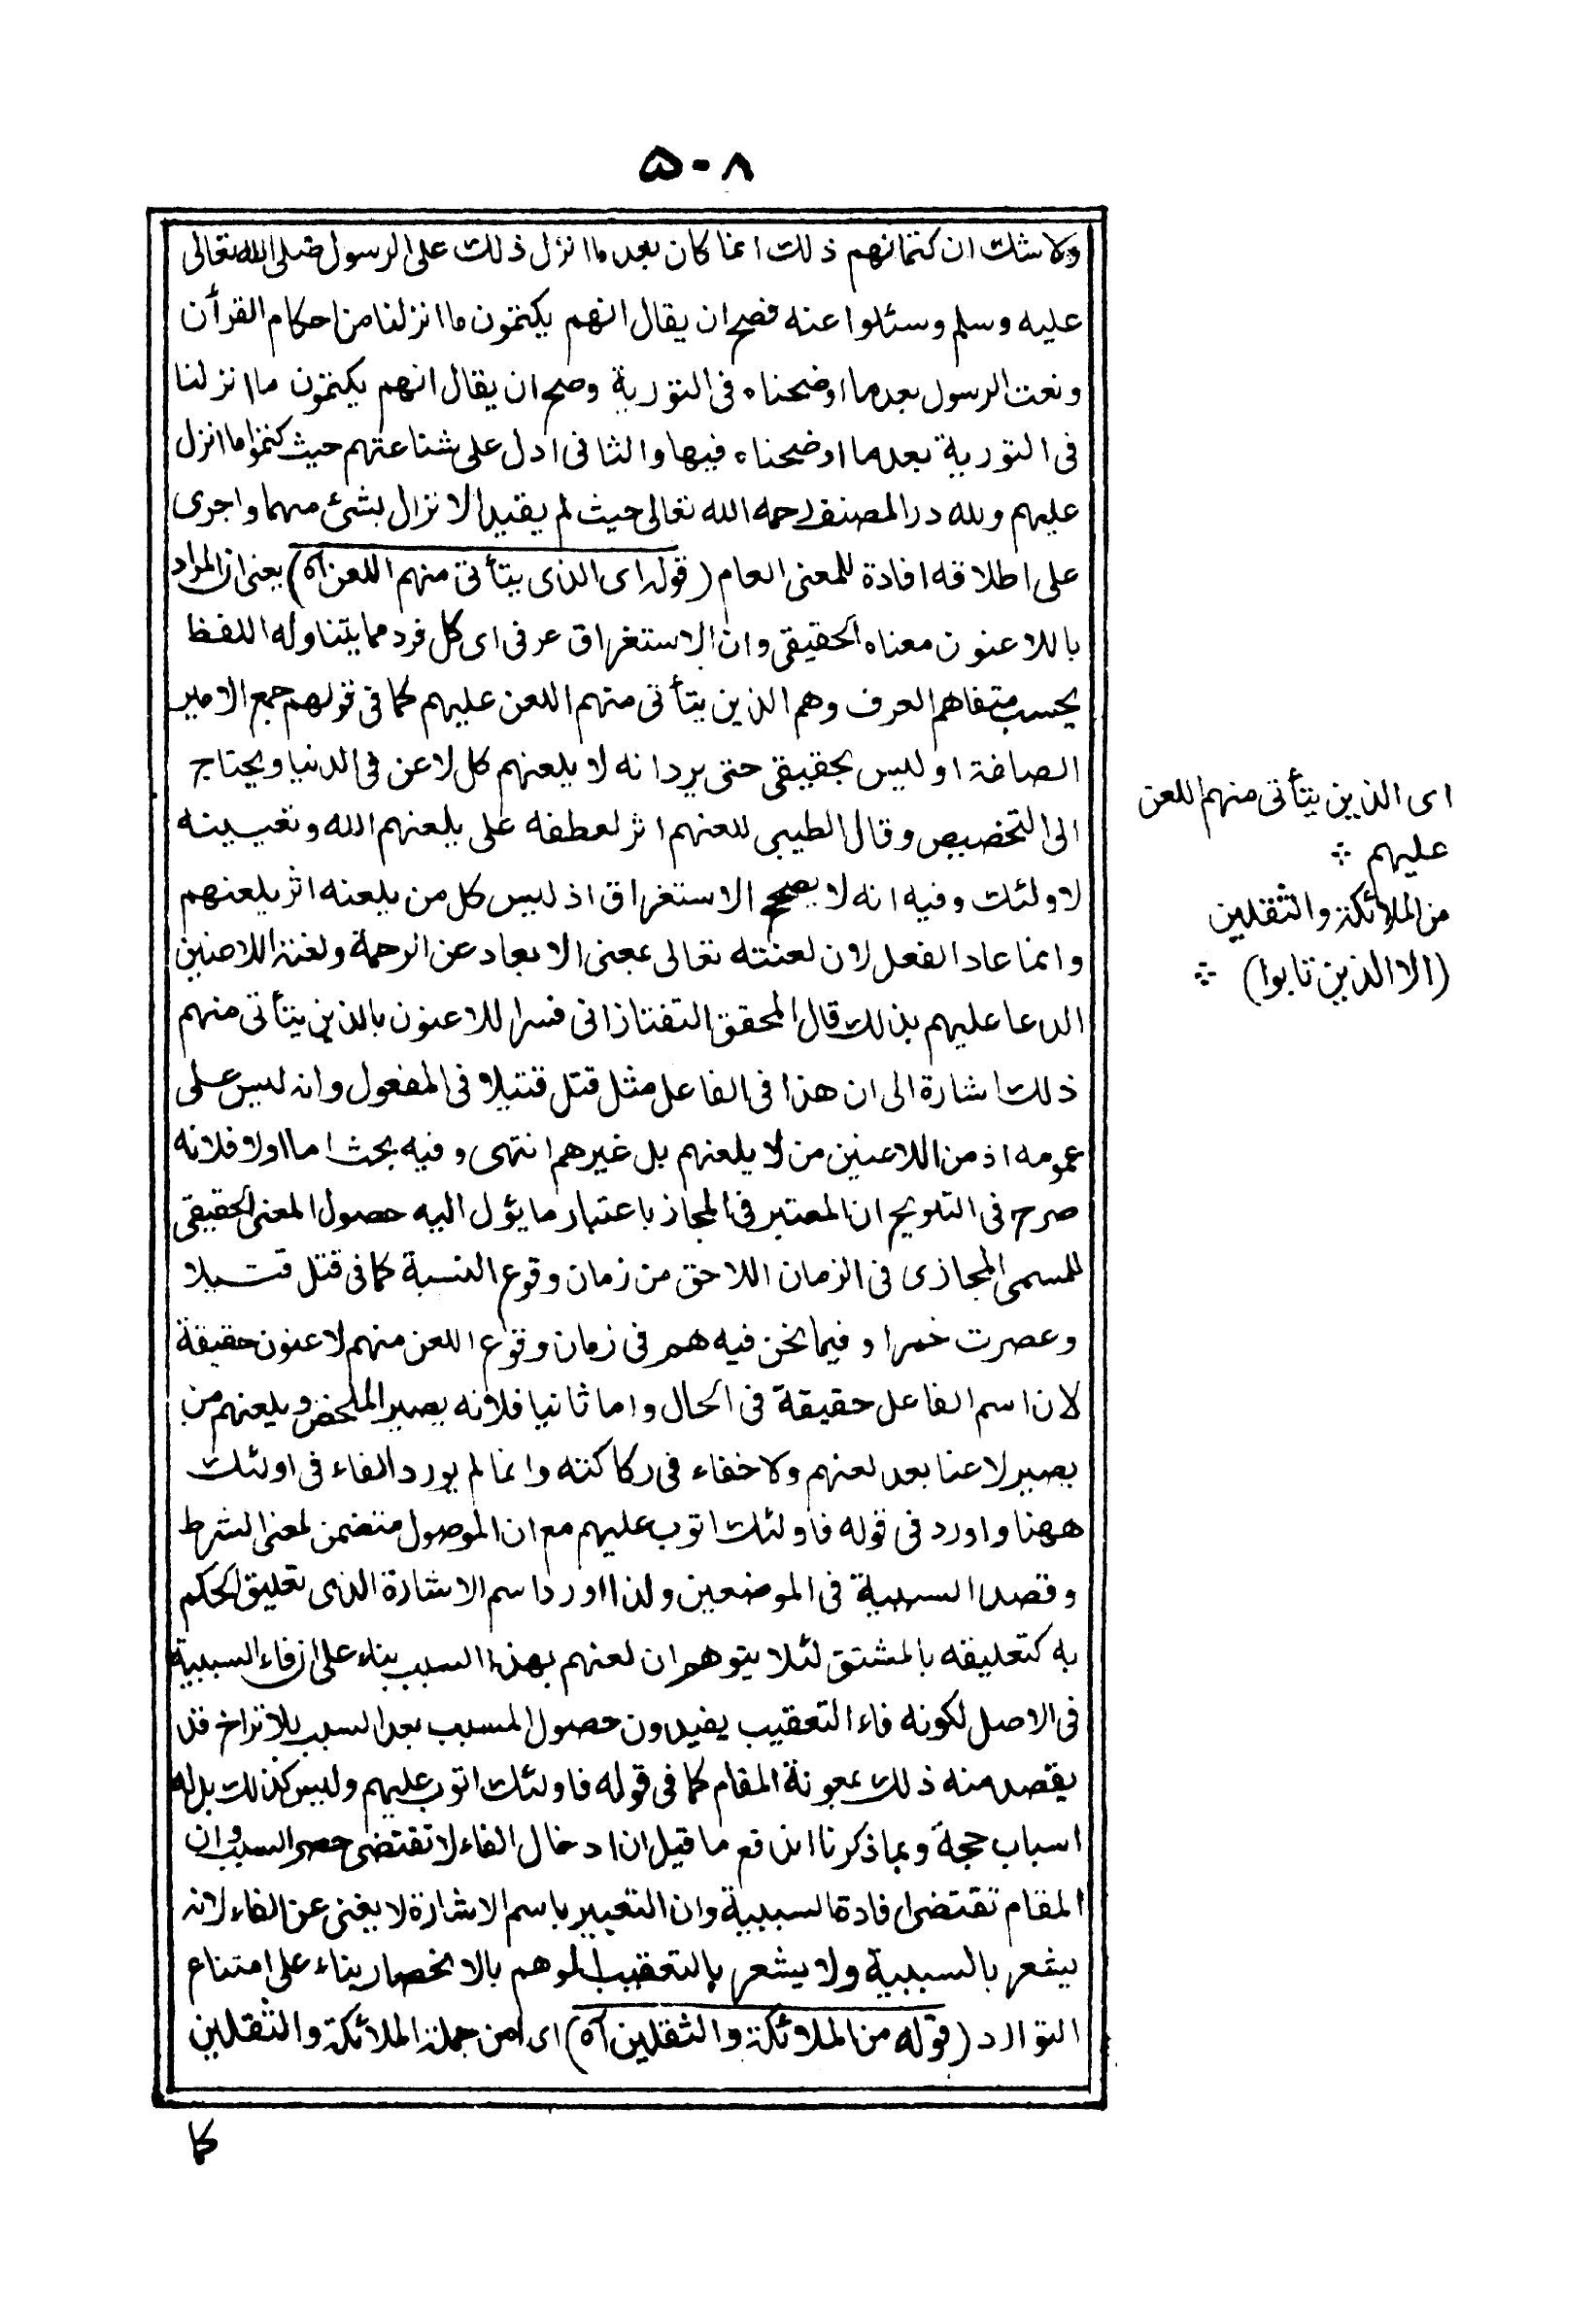 ۵۰۸
ولا شك ان كتمانهم ذلك انما كان بعد ما انزل ذلك على الرسول صلى الله تعالى
عليه وسلم وسئلوا عنه فصح ان يقال انهم يكتمون ما انزلنا من احكام القرأن
ونعت الرسول بعد ما اوضحناه فى التورية وصح ان يقال انهم يكتمون ما انزلنا
فى التورية بعد ما اوضحناه فيها والثانى ادل على شناعتهم حيث كتموا ما انزل
عليهم ولله در المصنف رحمه الله تعالى حيث لم يقيد الانزال بشئ منهما واجرى
على اطلاقه افادة للمعنى العام (قوله اى الذى يتأتى منهم اللعن آه) يعنى ان المراد
باللاعنون معناه الحقيقى وان الاستغراق عرفى اى كل فرد مما يتناوله اللفظ
بحسب متفاهم العرف وهم الذين يتأتى منهم اللعن عليهم كما فى قولهم جمع الامير
الصاغة او ليس بحقيقى حتى يرد انه لا يلعنهم كل لاعن فى الدنيا ويحتاج
الى التخصيص وقال الطيبى للعنهم اثر لعطفه على يلعنهم الله وتعيينه
لاولئك وفيه انه لا يصح الاستغراق اذ ليس كل من يلعنه اثر يلعنهم
وانما عاد الفعل لان لعنته تعالى بمعنى الابعاد عن الرحمة ولعنة اللاعنين
الدعا عليهم بذلك قال المحقق التفتازانى فسر اللاعنون بالذين يتأتى منهم
ذلك اشارة الى ان هذا فى الفاعل مثل قتل قتيلا فى المفعول وانه ليس على
عمومه اذ من اللاعنين من لا يلعنهم بل غيرهم انتهى وفيه بحث اما اولا فلانه
صرح فى التلويح ان المعتبر فى المجاز باعتبار ما يؤل اليه حصول المعنى الحقيقى
للمسمى المجازى فى الزمان اللاحق من زمان وقوع النسبة كما فى قتل قتيلا
وعصرت خمرا وفيما نحن فيه هم فى زمان وقوع اللعن منهم لاعنون حقيقة
لان اسم الفاعل حقيقة فى الحال واما ثانيا فلانه يصير الملخص ويلعنهم من
يصير لاعنا بعد لعنهم ولا خفاء فى ركاكته وانما لم يورد الفاء فى اولئك
ههنا واورد فى قوله فاولئك اتوب عليهم مع ان الموصول متضمن لمعنى الشرط
وقصد السببية فى الموضعين ولذا اورد اسم الاشارة الذى تعليق الحكم
به كتعليقه بالمشتق لئلا يتوهم ان لعنهم بهذا السبب بناء على ان فاء السببية
فى الاصل لكونه فاء التعقيب يفيد ون حصول المسبب بعد السبب بلا تراخ قد
يقصد منه ذلك بمعونة المقام كما فى قوله فاولئك اتوب عليهم وليس كذلك بل له
اسباب جمة وبما ذكرنا اندفع ما قيل ان ادخال الفاء لا تقتضى حصر السبب وان
المقام تقتضى افادة السببية وان التعبير باسم الاشارة لا يغنى عن الفاء لانه
يشعر بالسببية ولا يشعر بالتعقيب الموهم بالانحصار بناء على امتناع
التوارد (قوله من الملائكة والثقلين آه) اى من جملة الملائكة والثقلين
كما
اى الذين يتأتى منهم اللعن
عليهم
من الملائكة والثقلين
(الا الذين تابوا)